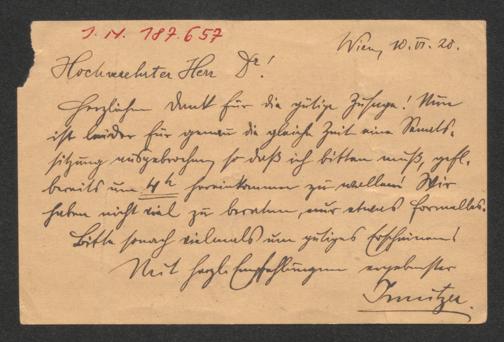 I. N. 187.657
Wien, 10. VI. 28.
Hochverehrter Herr Dr!
Herzlichen Dank für die gütige Zusage! Nun
ist leider für genau die gleiche Zeit eine Senats-
sitzung ausgebrochen, so daß ich bitten muß, gefl.
bereits um 4h hereinkommen zu wollen! Wir
haben nicht viel zu beraten, nur etwas Formelles.
Bitte sonach vielmals um gütiges Erscheinen!
Mit herzl. Empfehlungen ergebenster
Innitzer.